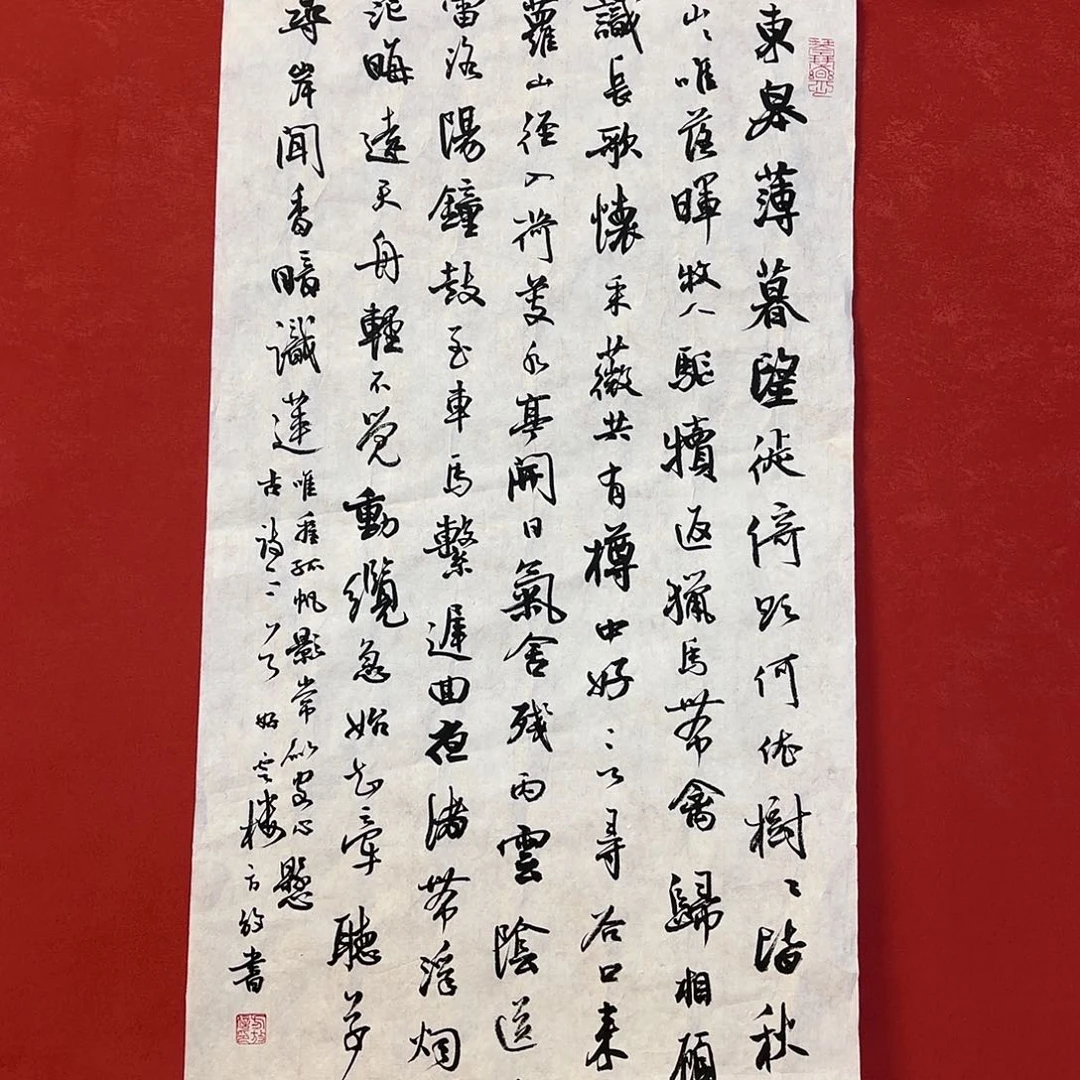 東皋薄暮望徙倚欲何依樹〻皆秋
山〻唯落暉牧人驅犢返獵馬帶禽歸相顧
識長歌懷采薇共有樽中好言尋谷口來
蘿山徑入荷芰水亭開日氣含殘雨雲陰送
雷洛陽鐘鼓至車馬繫遲回夜渚帶浮烟
茫晦遠天舟輕不覺動纜急始知牽聽
尋岸聞香暗識蓮
唯看孤帆影常似客心懸
古詩三首 好雲樓方放書